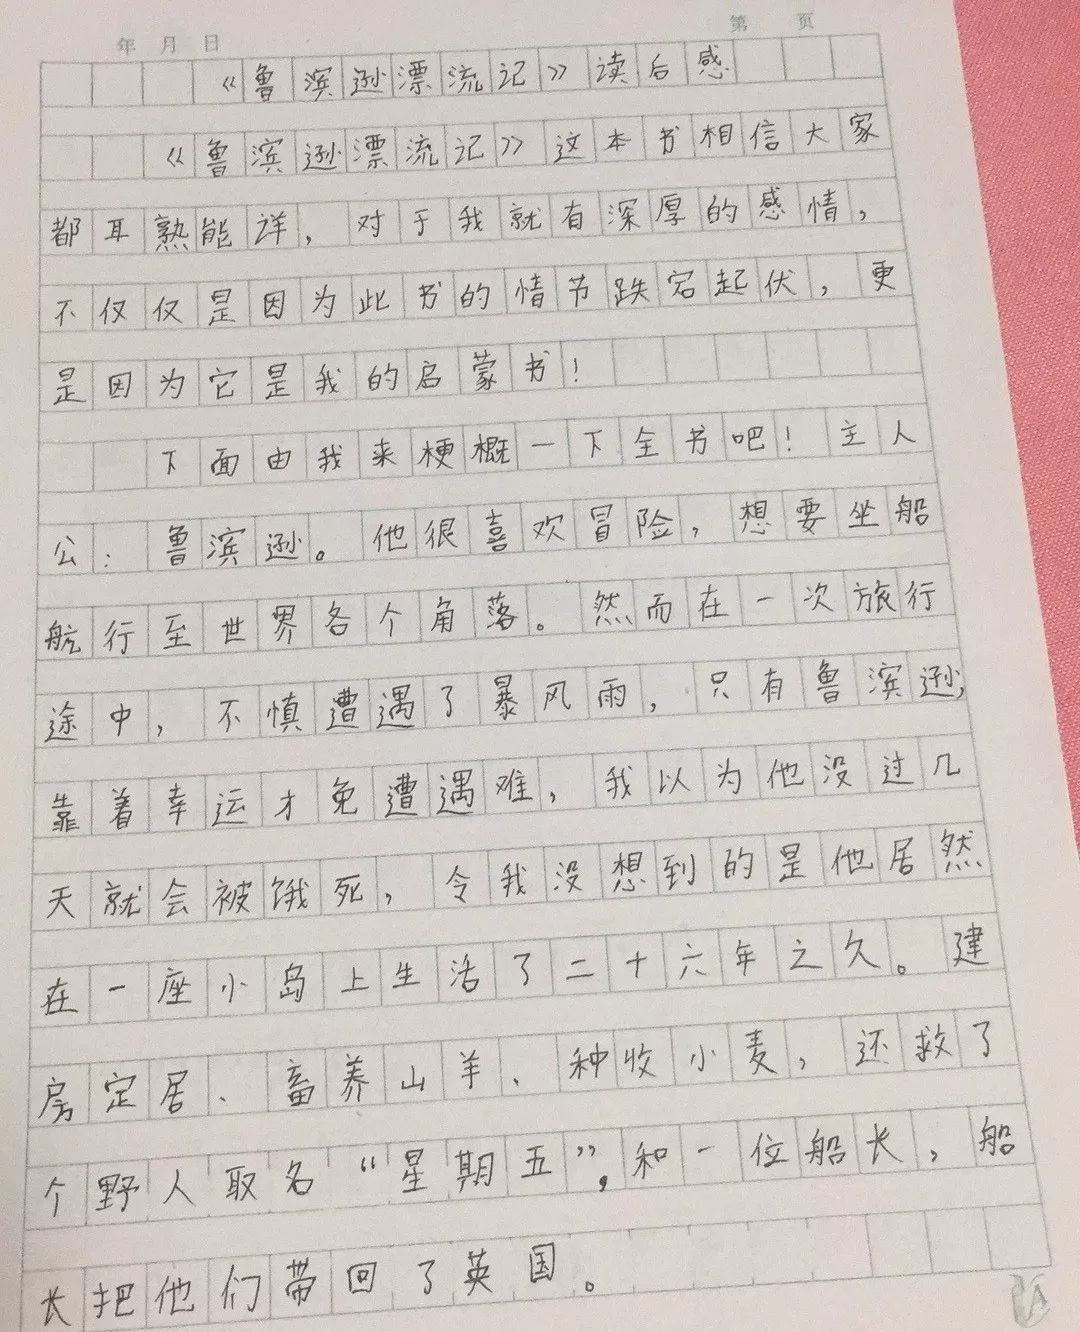 年 月 日 第 页
《鲁滨逊漂流记》读后感
《鲁滨逊漂流记》这本书相信大家
都耳熟能详，对于我就有深厚的感情，
不仅仅是因为此书的情节跌宕起伏，更
是因为它是我的启蒙书！
下面由我来梗概一下全书吧！主人
公：鲁滨逊。他很喜欢冒险，想要坐船
航行至世界各个角落。然而在一次旅行
途中，不慎遭遇了暴风雨，只有鲁滨逊，
靠着幸运才免遭遇难，我以为他没过几
天就会被饿死，令我没想到的是他居然
在一座小岛上生活了二十六年之久。建
房定居、畜养山羊、种收小麦，还救了
个野人取名“星期五”，和一位船长，船
长把他们带回了英国。